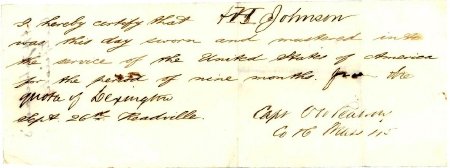 I hereby certify that H H Johnson
was this day sworn and mustered into
the service of the United States of America
for the period of nine months. for the
quota of Lexington
Sept 26th Readville.
Capt
Co K Mass 45